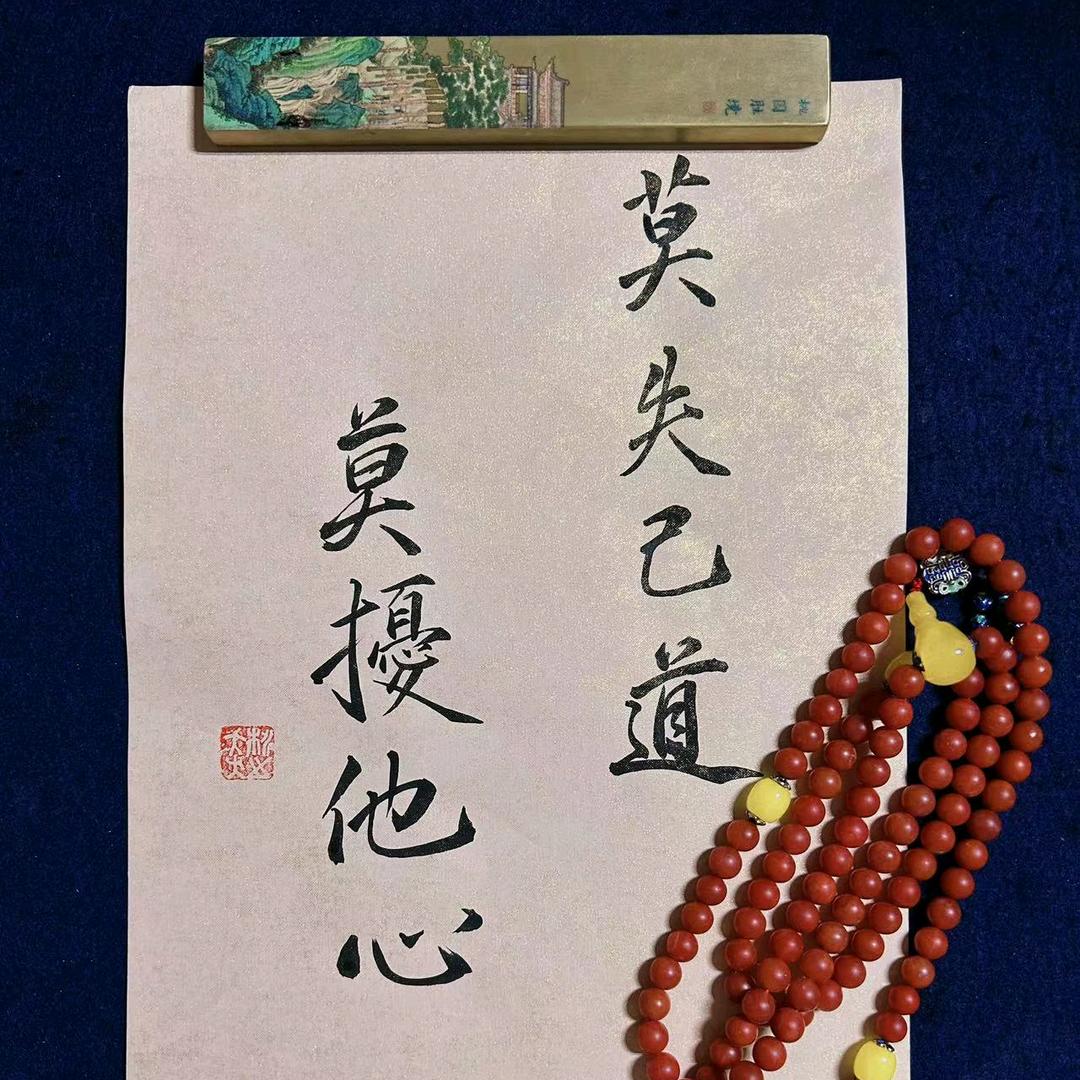 莫失己道
莫擾他心